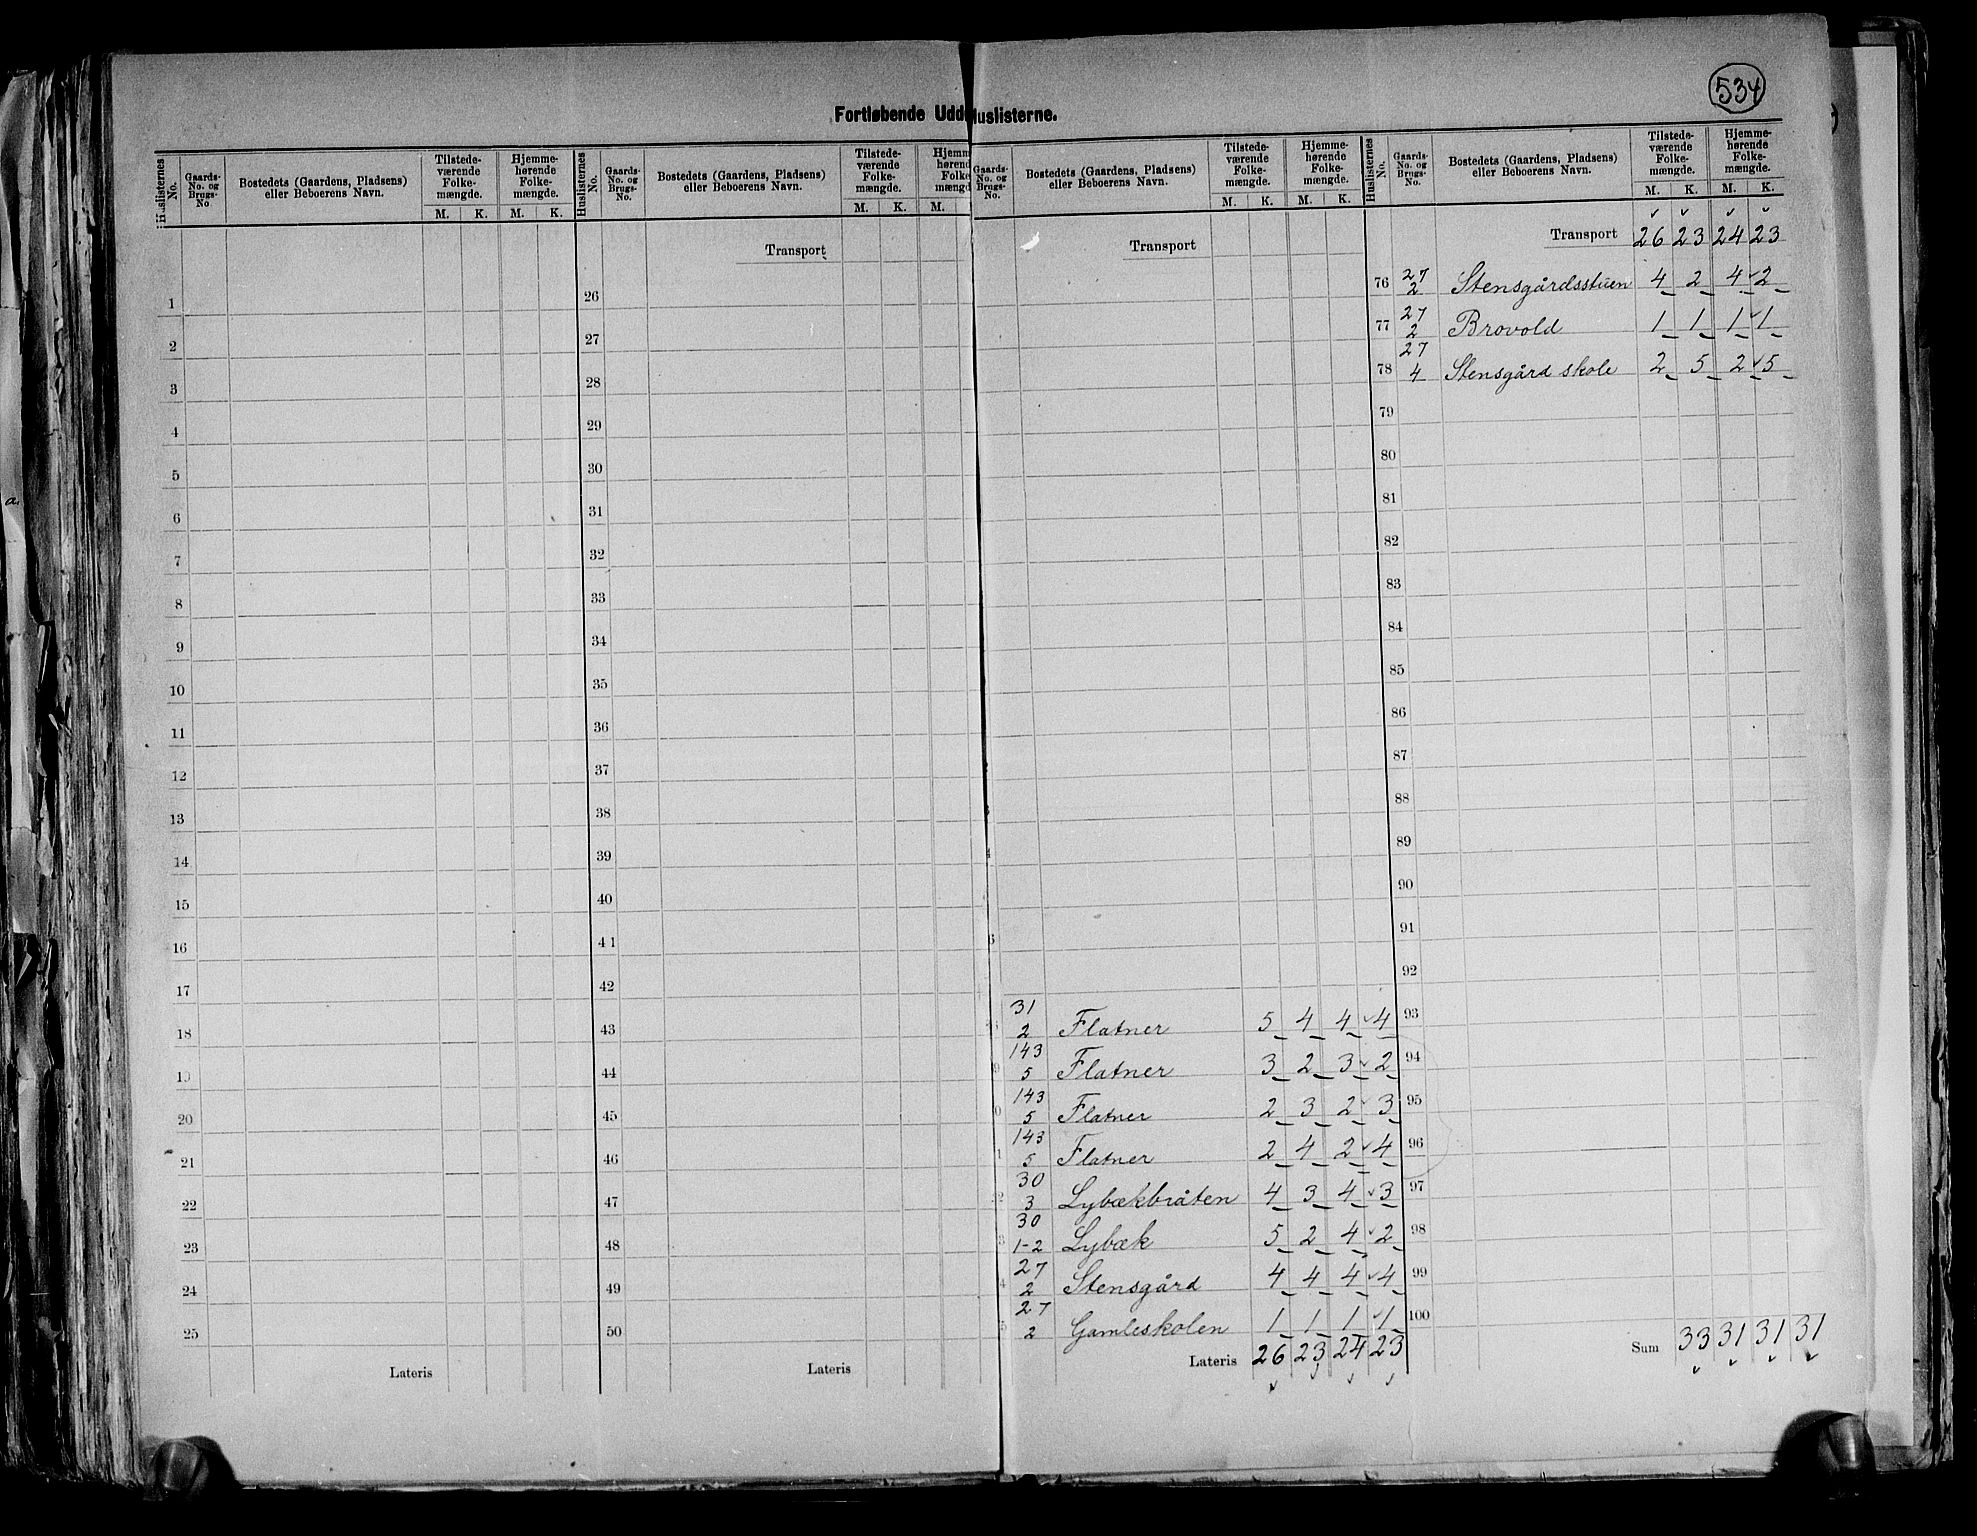 534
Fortløbende Udd uslisterne.
Huslisternes No. Gaards-No. og Brugs-No Bostedets (Gaardens, Pladsens) eller Beboerens Navn. Tilstedeværende Folkemængde. M. K. Hjemmehørende Folkemængde. M. K.
1
2
3
4
5
6
7
8
9
10
11
12
13
14
15
16
17
18
19
20
21
22
23
24
25
Lateris
Huslisternes No. Gaards-No. og Brugs-No. Bostedets (Gaardens, Pladsens) eller Beboerens Navn. Tilstedeværende Folkemængde. M. K. M.
Transport
26
27
28
29
30
31
32
33
34
35
36
37
38
39
40
41
42
43
44
45
46
47
48
49
50
Lateris
Gaards-No. og Brugs-No. Bostedets (Gaardens, Pladsens) eller Beboerens Navn. Tilstedeværende Folkemængde. M. K. Hjemmehørende Folkemængde. M. K.
Transport
31 2 Flatner 5 4 4 4
143 5 Flatner 3 2 3 2
143 5 Flatner 2 3 2 3
143 5 Flatner 2 4 2 4
30 3 Lybækbråten 4 3 4 3
30 1-2 Lybæk 5 2 4 2
27 2 Stensgård 4 4 4 4
27 2 Gamleskolen 1 1 1 1
Lateris 26 23 24 23
Huslisternes No. Gaards-No. og Brugs-No. Bostedets (Gaardens, Pladsens) eller Beboerens Navn. Tilstedeværende Folkemængde. M. K. Hjemmehørende Folkemængde. M. K.
Transport 26 23 24 23
76 27 2 Stensgårdsstuen 4 2 4 2
77 27 2 Brovold 1 1 1 1
78 27 4 Stensgård skole 2 5 2 5
79
80
81
82
83
84
85
86
87
88
89
90
91
92
93
94
95
96
97
98
99
100
Sum 33 31 31 31